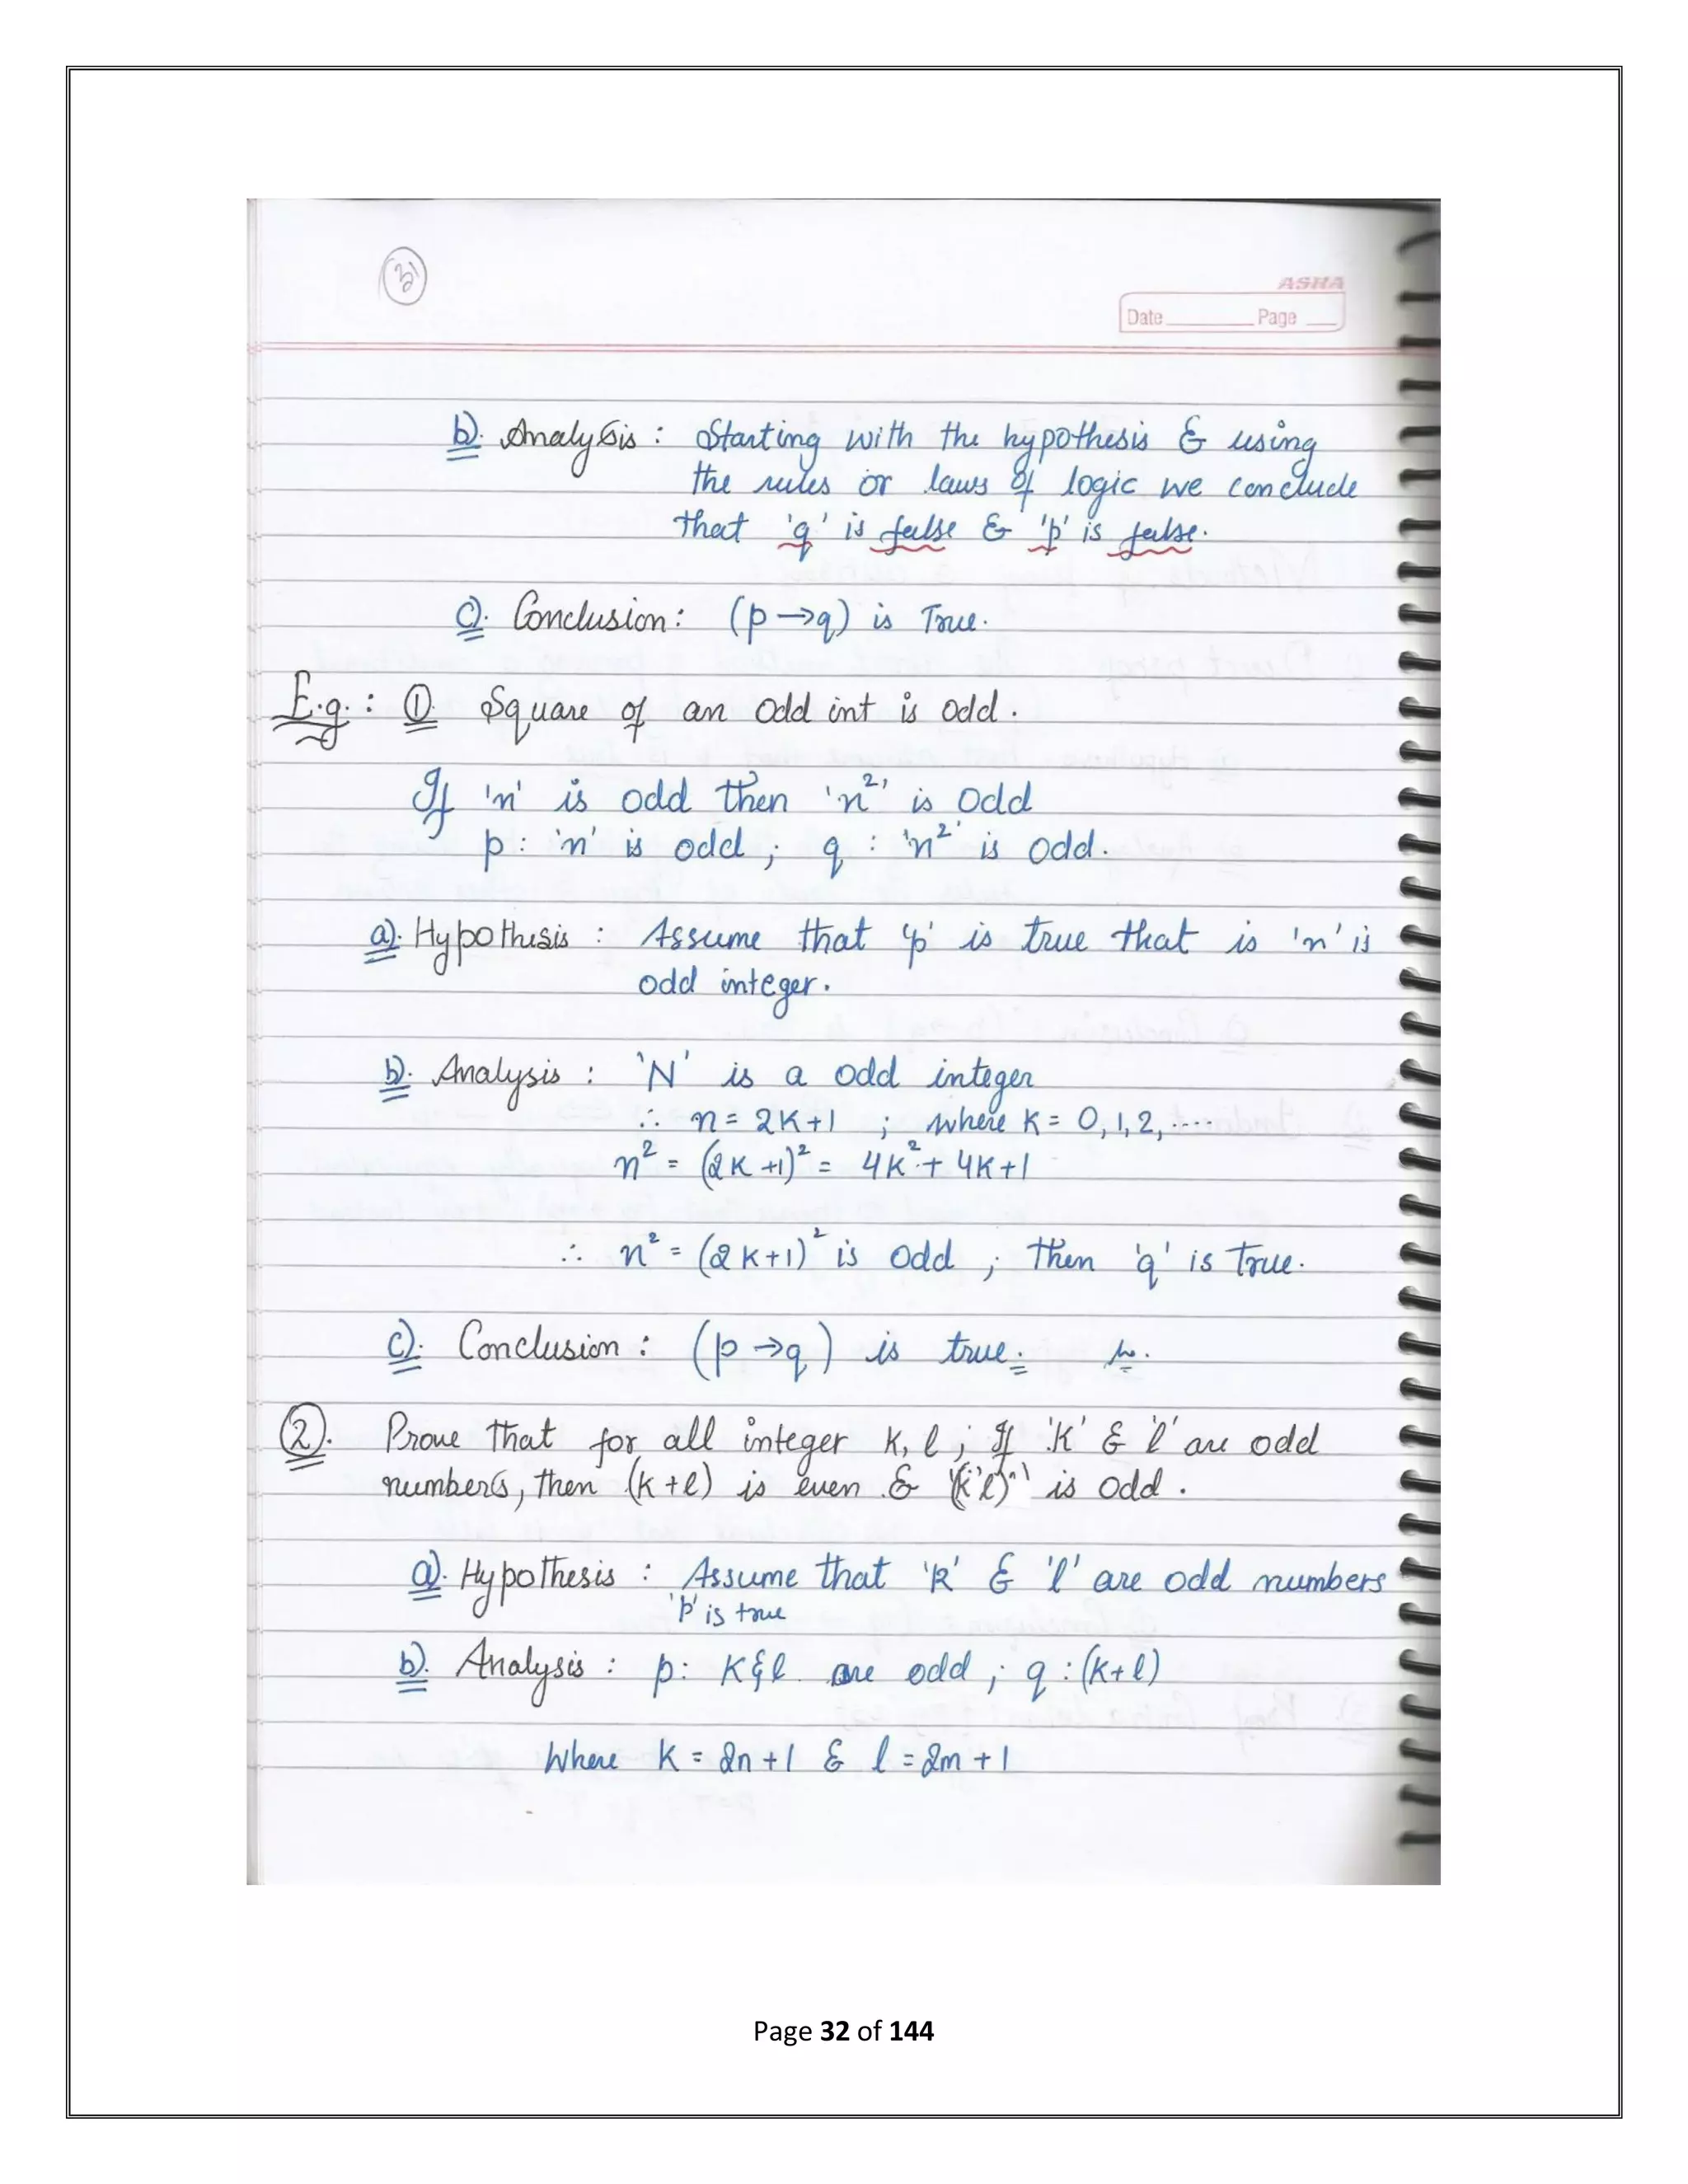 31
ASHA
Date Page
b). Analysis : Starting with the hypothesis & using
the rules or laws of logic we conclude
that 'q' is false & 'p' is false.
c). Conclusion : (p → q) is True.
E.g. : ①. Square of an odd int is odd.
If 'n' is odd then 'n²' is odd
p : 'n' is odd ; q : 'n²' is odd.
a). Hypothesis : Assume that 'p' is true that is 'n' is
odd integer.
b). Analysis : 'N' is a odd integer
∴ n = 2K+1 ; where K = 0, 1, 2, ....
n² = (2K+1)² = 4K² + 4K+1
∴ n² = (2K+1)² is odd ; then 'q' is True.
c). Conclusion : (p → q) is true.
②. Prove that for all integer K, l ; If 'K' & 'l' are odd
numbers, then (k+l) is even & (k l) is odd.
a). Hypothesis : Assume that 'k' & 'l' are odd numbers
'p' is true
b). Analysis : p : K & l are odd ; q : (K+l)
Where K = 2n+1 & l = 2m+1
Page 32 of 144